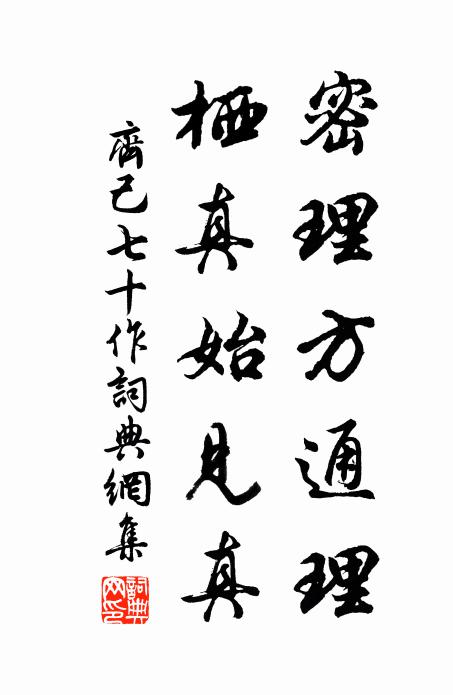 密理方通理
栖真始見真
齊己七十作詞典網集
詞典網印